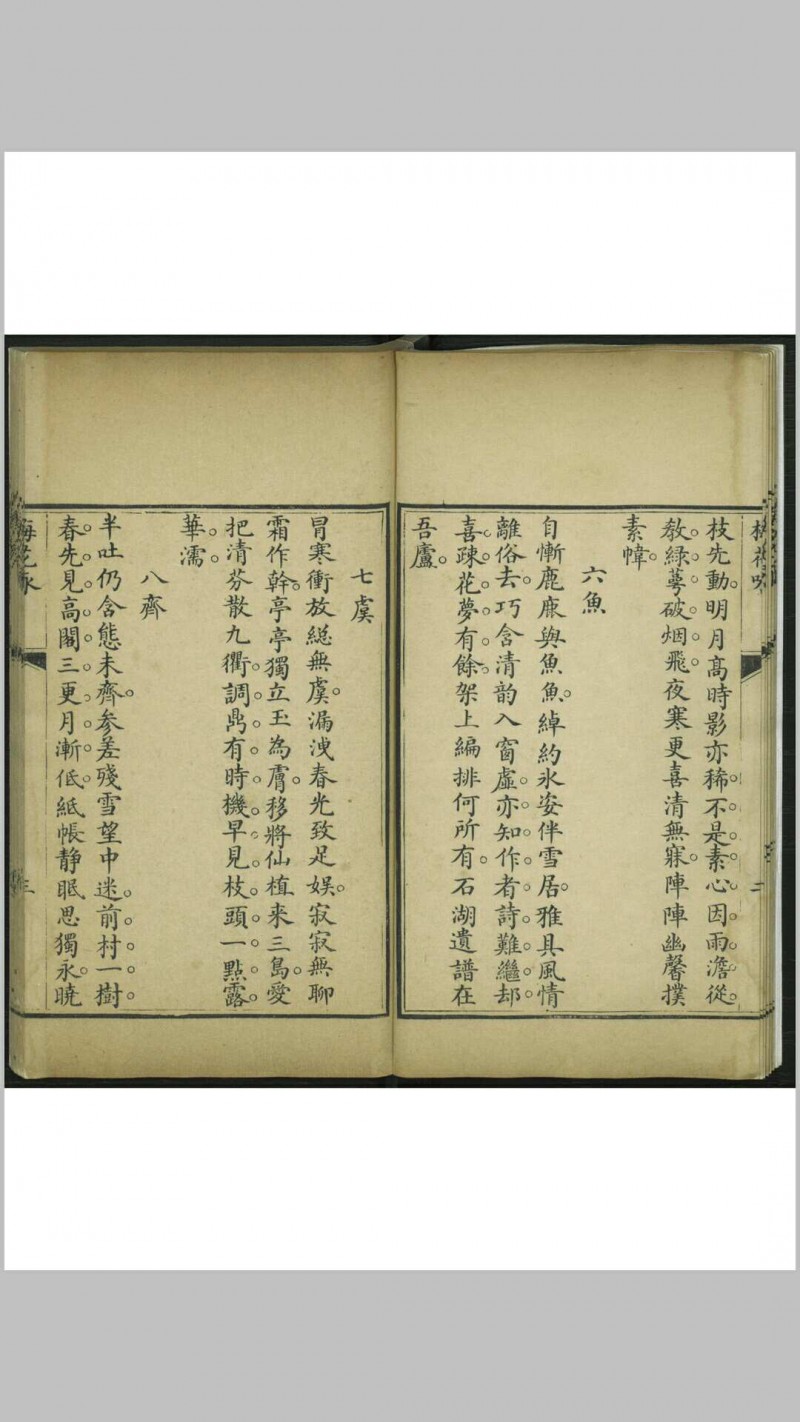 枝先動。明月高時影亦稀。不是素心因雨澹。從
教綠萼破烟飛。夜寒更喜清無寐。陣陣幽馨撲
素幃。
六魚
自慚鹿廌與魚魚。綽約氷姿伴雪居。雅具風情
離俗去。巧含清韵入窗虛。亦知作者詩難繼。却
喜踈花夢有餘。架上編排何所有。石湖遺譜在
吾廬。
二
七虞
冒寒衝放縂無虞。漏洩春光致足娛。寂寂無聊
霜作幹。亭亭獨立玉為膚。移將仙植來三島。愛
把清芬散九衢。調鼎有時機早見。枝頭一點露
華濡。
八齊
半吐仍含態未齊。参差殘雪望中迷。前村一樹
春先見。高閣三更月漸低。紙帳静眠思獨永。曉
梅花永
三